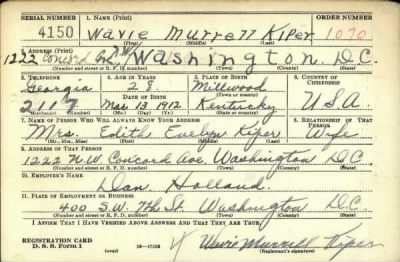 SERIAL NUMBER 1. NAME (Print) ORDER NUMBER
4150 Wavie Murrett Kiper 1070
(First) (Middle) (Last)
2. ADDRESS (Print)
1222 Concord Ave. N.W. Washington, D.C.
(Number and street or R. F. D. number) (Town) (County) (State)
3. TELEPHONE 4. AGE IN YEARS 5. PLACE OF BIRTH 6. COUNTRY OF CITIZENSHIP
Georgia 28 Millwood
DATE OF BIRTH (Town or county)
2117 Mar. 13 1912 Kentucky U.S.A.
(Exchange) (Number) (Mo.) (Day) (Yr.) (State or country)
7. NAME OF PERSON WHO WILL ALWAYS KNOW YOUR ADDRESS 8. RELATIONSHIP OF THAT PERSON
Mrs. Edith Evelyn Kiper Wife
(Mr., Mrs., Miss) (First) (Middle) (Last)
9. ADDRESS OF THAT PERSON
1222 N.W. Concord Ave. Washington D.C.
(Number and street or R. F. D. number) (Town) (County) (State)
10. EMPLOYER'S NAME
Dan Holland
11. PLACE OF EMPLOYMENT OR BUSINESS
400 S.W. 7th St. Washington D.C.
(Number and street or R. F. D. number) (Town) (County) (State)
I AFFIRM THAT I HAVE VERIFIED ABOVE ANSWERS AND THAT THEY ARE TRUE.
REGISTRATION CARD
D. S. S. Form 1 (over) 16—17105 Wavie Murrett Kiper
(Registrant's signature)